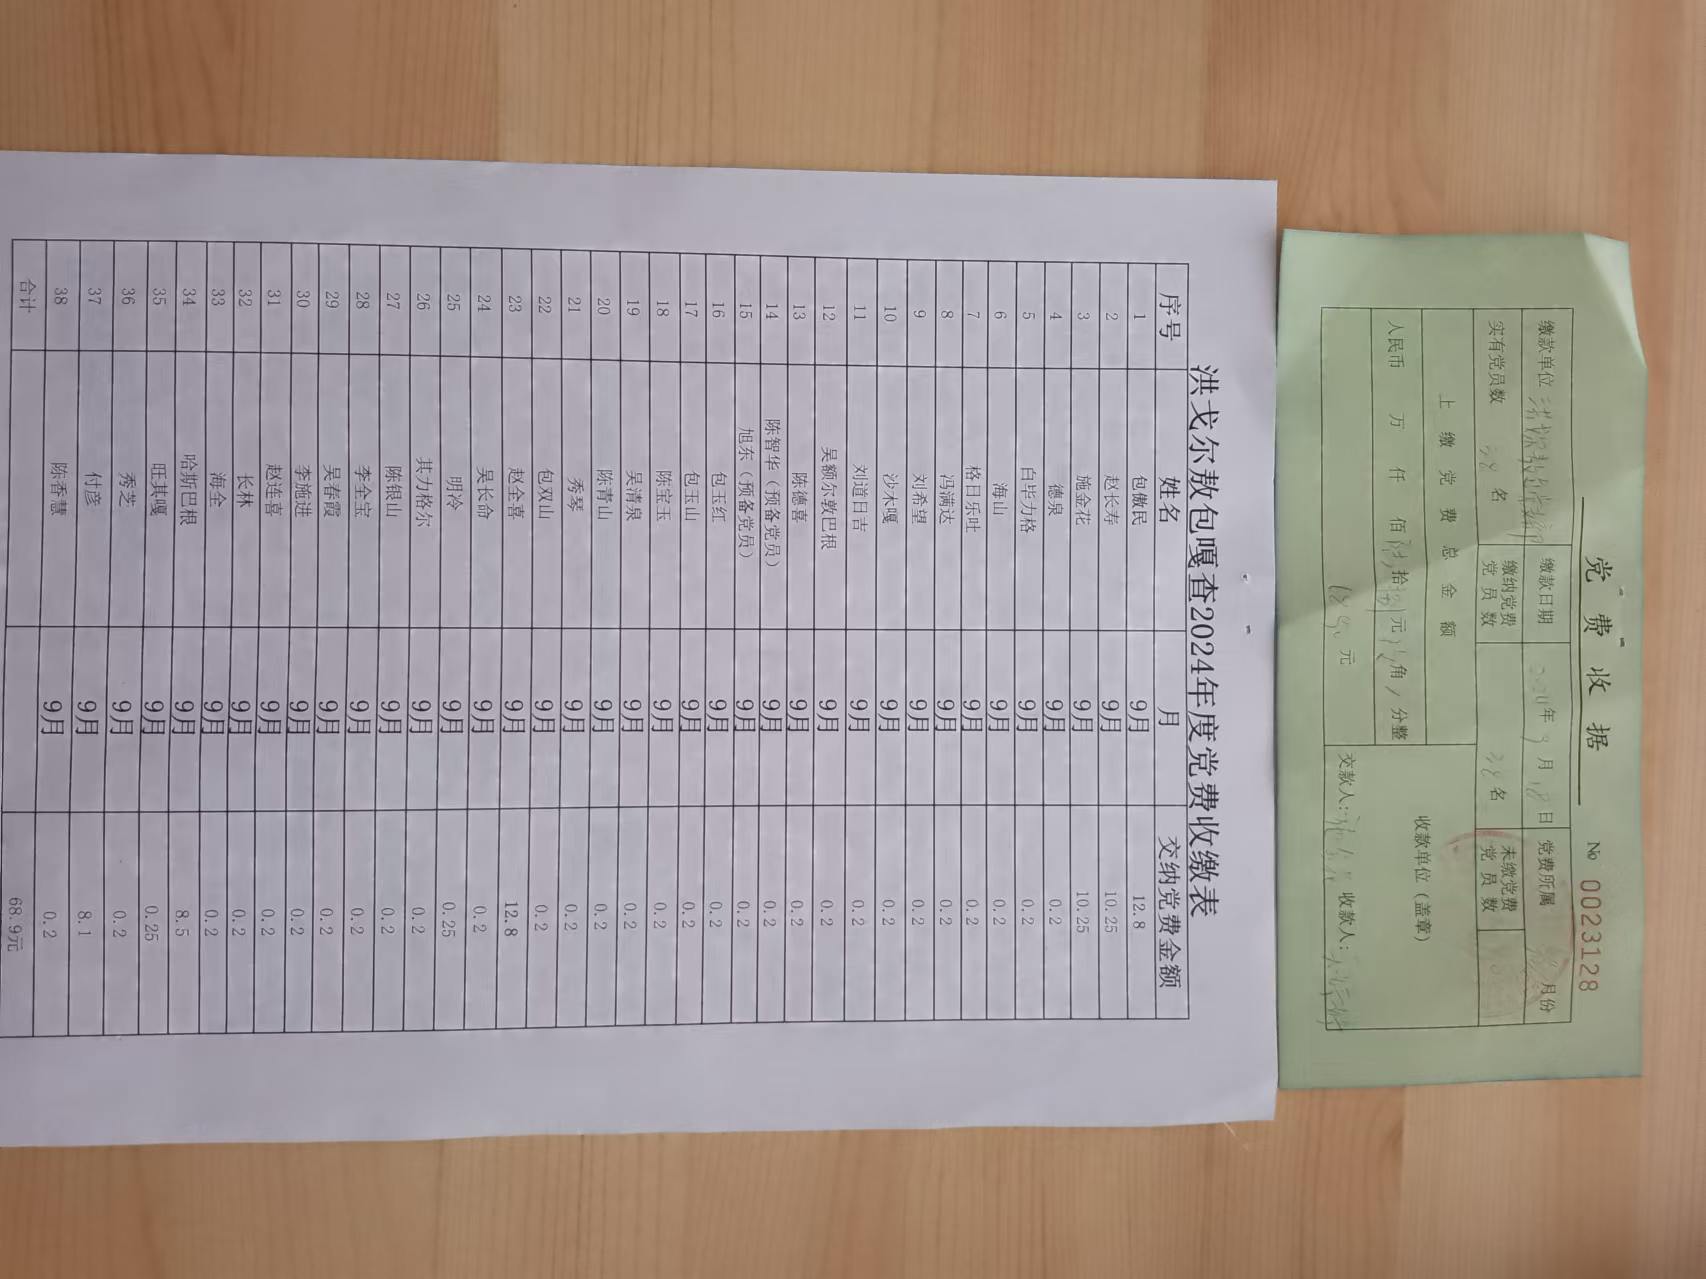 党费收据 № 0023128
缴款单位 缴款日期 年9月18日 党费所属 月份
实有党员数 38名 缴纳党费党员数 38名 未缴党费党员数
上缴党费总金额 收款单位（盖章）
人民币 万 仟 佰 拾 元 角 分整
元 交款人: 收款人:
洪戈尔敖包嘎查2024年度党费收缴表
序号 姓名 月 交纳党费金额
1 包傲民 9月 12.8
2 赵长寿 9月 10.25
3 施金花 9月 10.25
4 德泉 9月 0.2
5 白毕力格 9月 0.2
6 海山 9月 0.2
7 格日乐吐 9月 0.2
8 冯满达 9月 0.2
9 刘希望 9月 0.2
10 沙木嘎 9月 0.2
11 刘道日吉 9月 0.2
12 吴额尔敦巴根 9月 0.2
13 陈德喜 9月 0.2
14 陈智华（预备党员） 9月 0.2
15 旭东（预备党员） 9月 0.2
16 包玉红 9月 0.2
17 包玉山 9月 0.2
18 陈宝玉 9月 0.2
19 吴清泉 9月 0.2
20 陈青山 9月 0.2
21 秀琴 9月 0.2
22 包双山 9月 0.2
23 赵全喜 9月 12.8
24 吴长命 9月 0.2
25 明冷 9月 0.25
26 其力格尔 9月 0.2
27 陈银山 9月 0.2
28 李全宝 9月 0.2
29 吴春霞 9月 0.2
30 李施进 9月 0.2
31 赵连喜 9月 0.2
32 长林 9月 0.2
33 海全 9月 0.2
34 哈斯巴根 9月 8.5
35 旺其嘎 9月 0.25
36 秀芝 9月 0.2
37 付彦 9月 8.1
38 陈香慧 9月 0.2
合计 68.9元